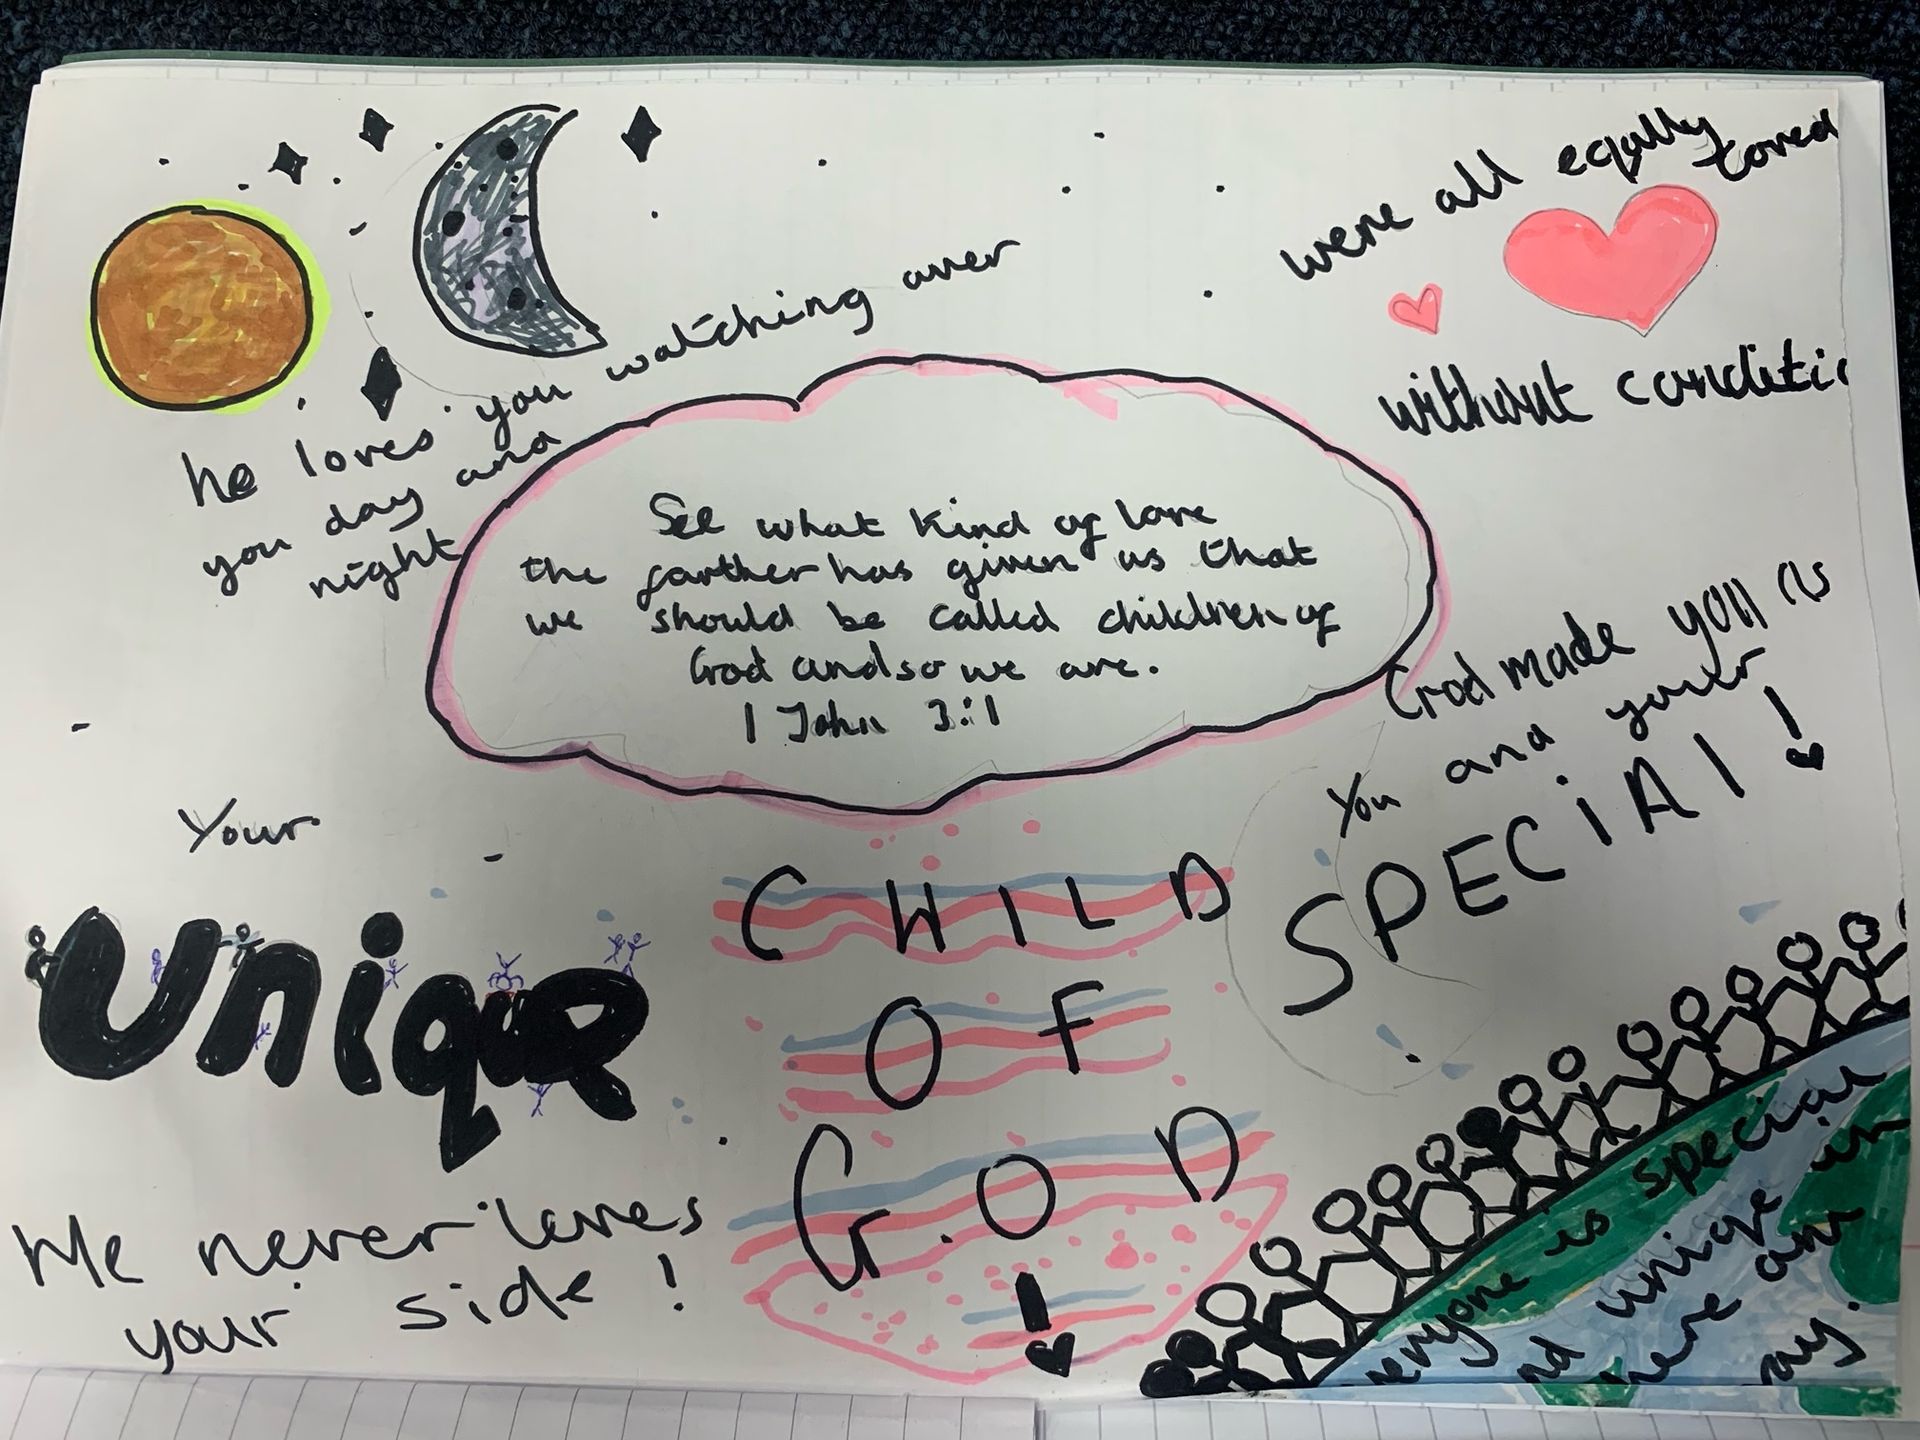 were all equally
loved
without conditi
he loves you watching over
you day and
night
See what kind of love
the farther has given us that
we should be called children of
God and so we are.
1 John 3:1
God made you as
you and your
SPECIAl!
Your
unique
CHILD
OF
GOD
!
He never leves
your side!
everyone is special
nd unique in
here own
way.